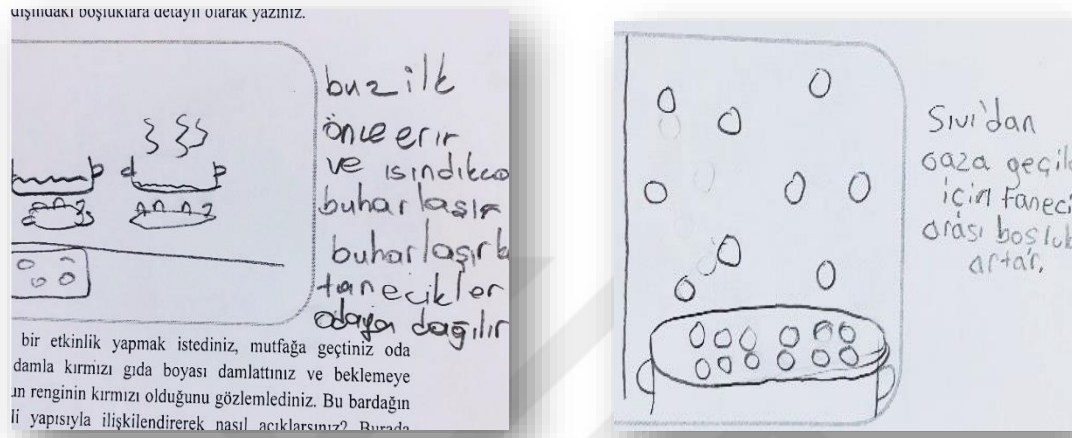 dışındaki boşluklara detaylı olarak yazınız.
buz ilk
önce erir
ve ısındıkca
buharlaşır
buharlaşırk
tanecikler
odaya dağılır
bir etkinlik yapmak istediniz, mutfağa geçtiniz oda
damla kırmızı gıda boyası damlattınız ve beklemeye
un renginin kırmızı olduğunu gözlemlediniz. Bu bardağın
li yapısıyla ilişkilendirerek nasıl açıklarsınız? Burada
Sıvı'dan
gaza geçild
için taneci
arası boşluk
artar.